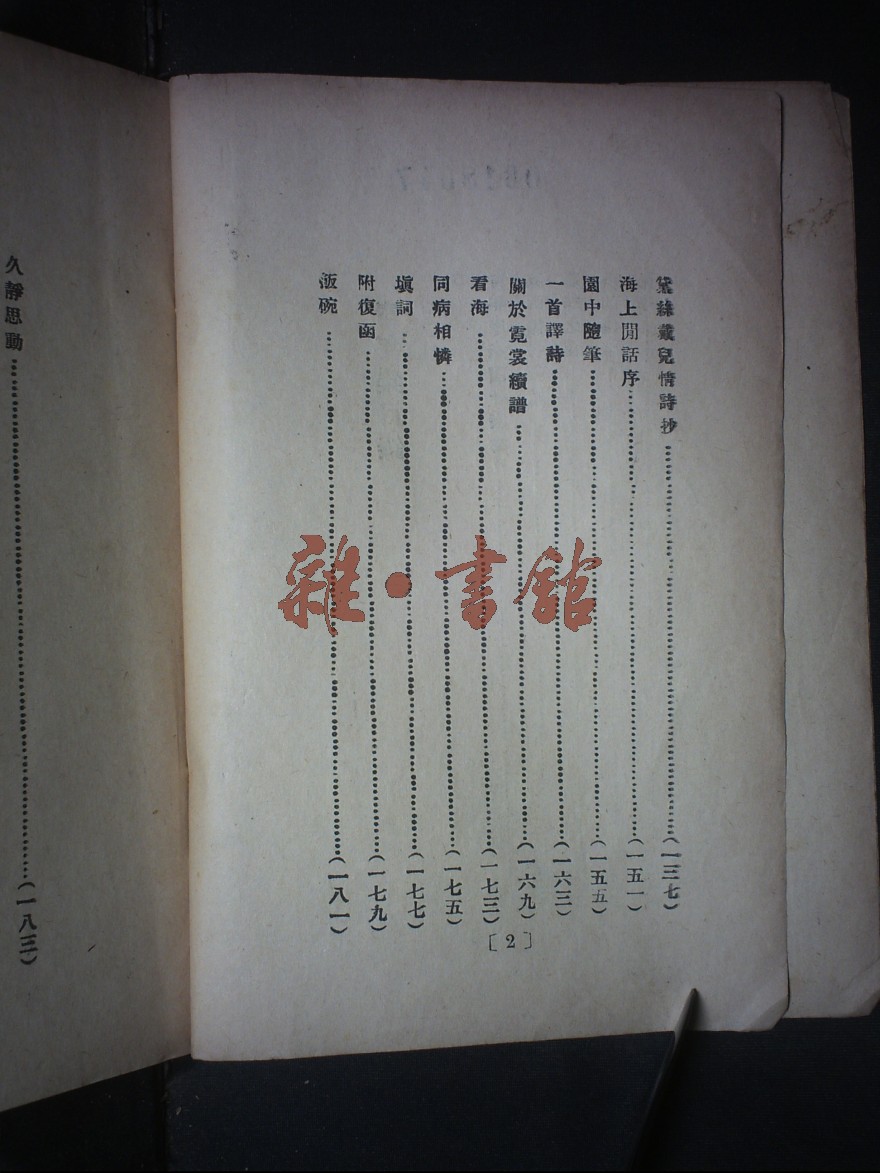 黛絲戴兒情詩抄……(一三七)
海上閒話序……(一五一)
園中隨筆……(一五五)
一首譯詩……(一六三)
關於霓裳續譜……(一六九)
看海……(一七三)
同病相憐……(一七五)
塡詞……(一七七)
附復函……(一七九)
飯碗……(一八一)
[2]
久靜思動……(一八三)
雜·書館